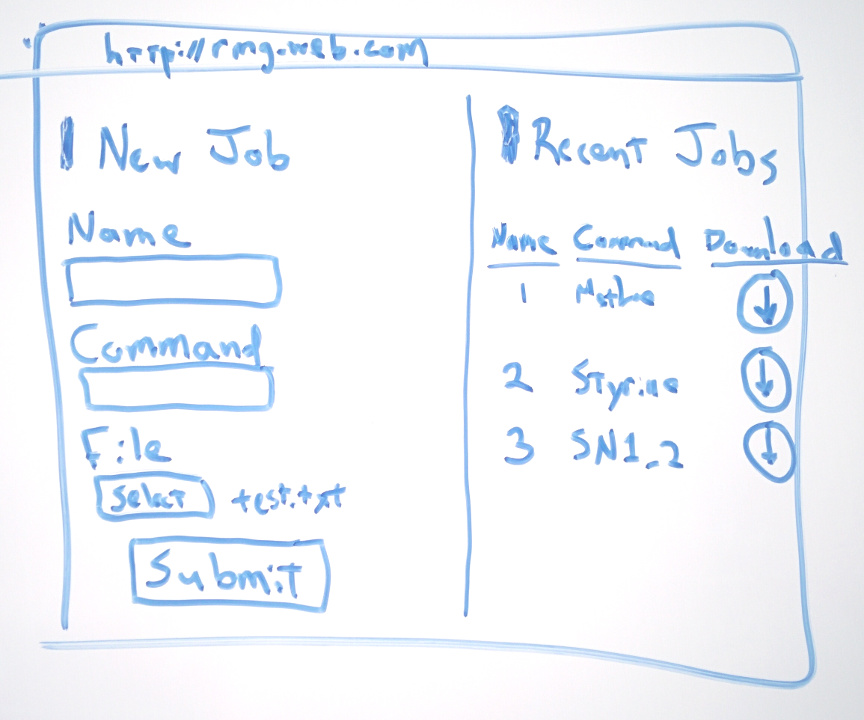 http://rmg-web.com
New Job
Name
Command
File
Select test.txt
Submit
Recent Jobs
Name Command Download
1
2 Styrine
3 SN1_2